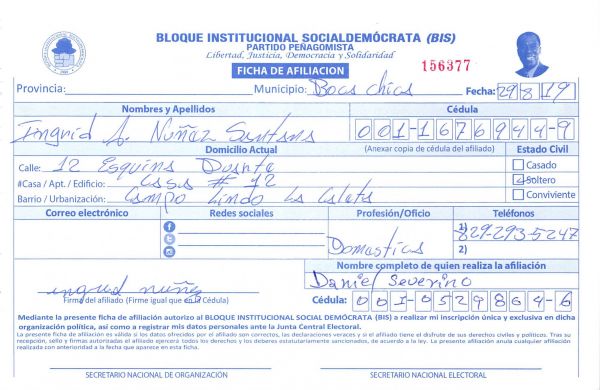 BLOQUE INSTITUCIONAL SOCIALDEMÓCRATA (BIS)
PARTIDO PEÑAGOMISTA
Libertad, Justicia, Democracia y Solidaridad
FICHA DE AFILIACION
156377
Provincia: Municipio: Boca chica Fecha: 29 8 19
Nombres y Apellidos Cédula
Ingrid A. Nuñez Santana 001-1676944-9
Domicilio Actual (Anexar copia de cédula del afiliado) Estado Civil
Calle: 12 Esquina Duarte Casado
#Casa / Apt. / Edificio: Casa # 12 Soltero
Barrio / Urbanización: Campo Lindo La Caleta Conviviente
Correo electrónico Redes sociales Profesión/Oficio Teléfonos
1) 829-293-5247
Domestica 2)
Nombre completo de quien realiza la afiliación
ingrid nuñez Daniel Severino
Firma del afiliado (Firme igual que en la Cédula) Cédula: 001-0529864-6
Mediante la presente ficha de afiliación autorizo al BLOQUE INSTITUCIONAL SOCIAL DEMÓCRATA (BIS) a realizar mi inscripción única y exclusiva en dicha
organización política, así como a registrar mis datos personales ante la Junta Central Electoral.
La presente ficha de afiliación es válida si los datos ofrecidos por el afiliado son correctos, las declaraciones veraces y si el afiliado tiene el disfrute de sus derechos civiles y políticos. Tras su
recepción, sello y firmas autorizadas el afiliado ejercerá todos los derechos y los deberes estatutariamente sancionados, de acuerdo a la ley. La presente afiliación anula cualquier afiliación
realizada con anterioridad a la fecha que aparece en esta ficha.
SECRETARIO NACIONAL DE ORGANIZACIÓN SECRETARIO NACIONAL ELECTORAL